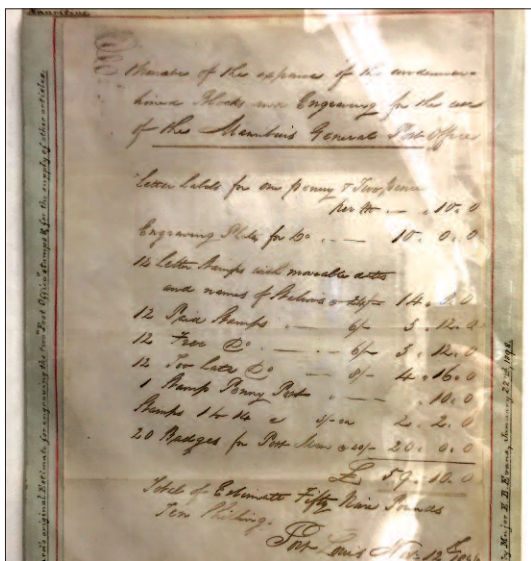 Mauritius
Estimate of the expense of the undermen-
tioned Stocks and Engraving for the use
of the Mauritius General Post Office
Letter Labels for one penny & Two pence
per M . — „ 10. 0
Engraving Plate for Do . — 10. 0. 0
14 Letter Stamps with moveable dates
and names of Stations @ 20/- 14. 0. 0
12 Paid Stamps . — 6/- 3. 12. 0
12 Free Do . — 6/- 3. 12. 0
12 Too late Do — 8/- 4. 16. 0
1 Stamp Penny Post — . 10. 0
Stamps 1 to 14 @ 3/- ea 2. 2. 0
20 Badges for Post Men @ 20/- 20. 0. 0
£ 59. 10. 0
Total of Estimate Fifty Nine Pounds
Ten Shillings.
Port Louis Nov. 12th
original Estimate for engraving the two "Post Office" stamps & for the supply of other articles.
by Major E. B. Evans, January 22nd, 1898